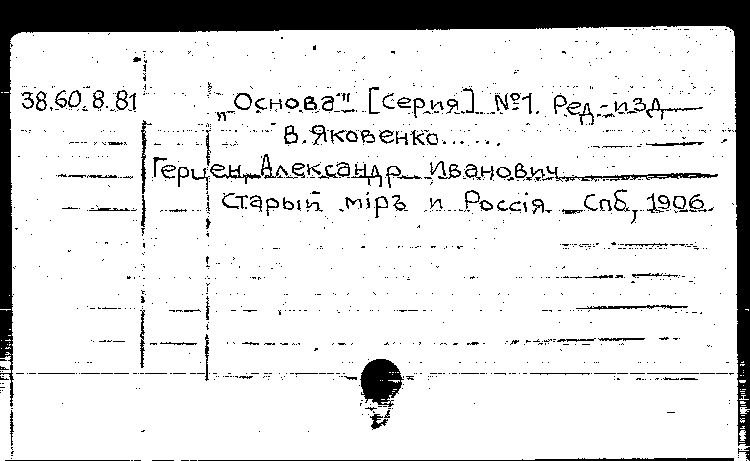 38.60.8.81 „Основа" [Серия] №1. Ред.-изд.
В. Яковенко......
Герцен, Александр Иванович
Старый мiръ и Россiя. Спб, 1906.